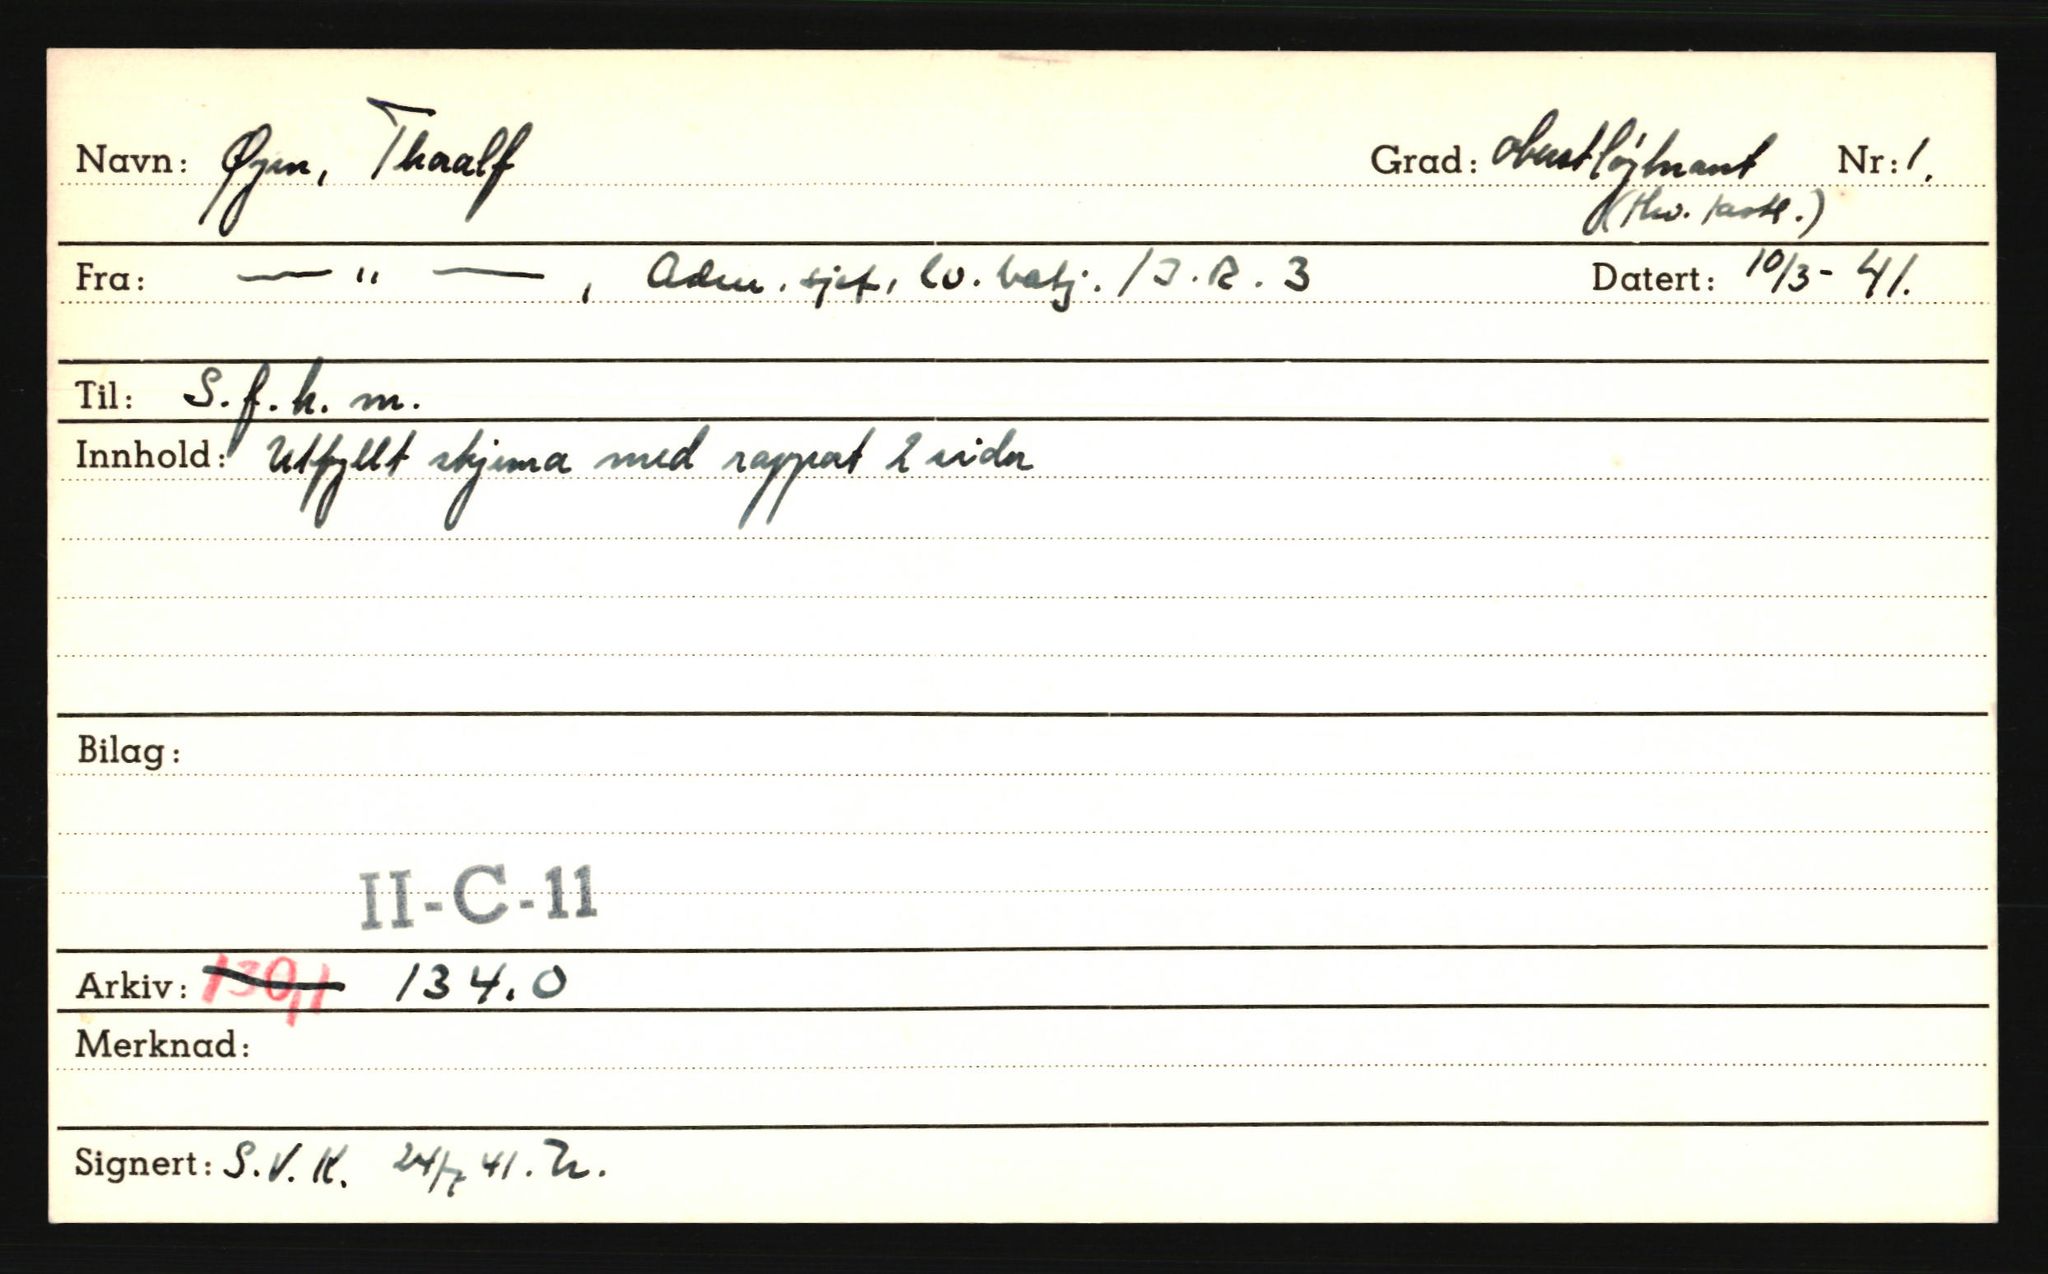 Navn: Øyen, Thoralf Grad: oberstløjtnant Nr: 1.
Fra: — " —, Adm. sjef, lv. batj. / I.R. 3 Datert: 10/3 - 41.
Til: S.f.h.m.
Innhold: Utfyllt skjema med rapport 2 sider
Bilag:
II-C-11
Arkiv: 130,1 134.0
Merknad:
Signert: S.V.K. 24/7 41.